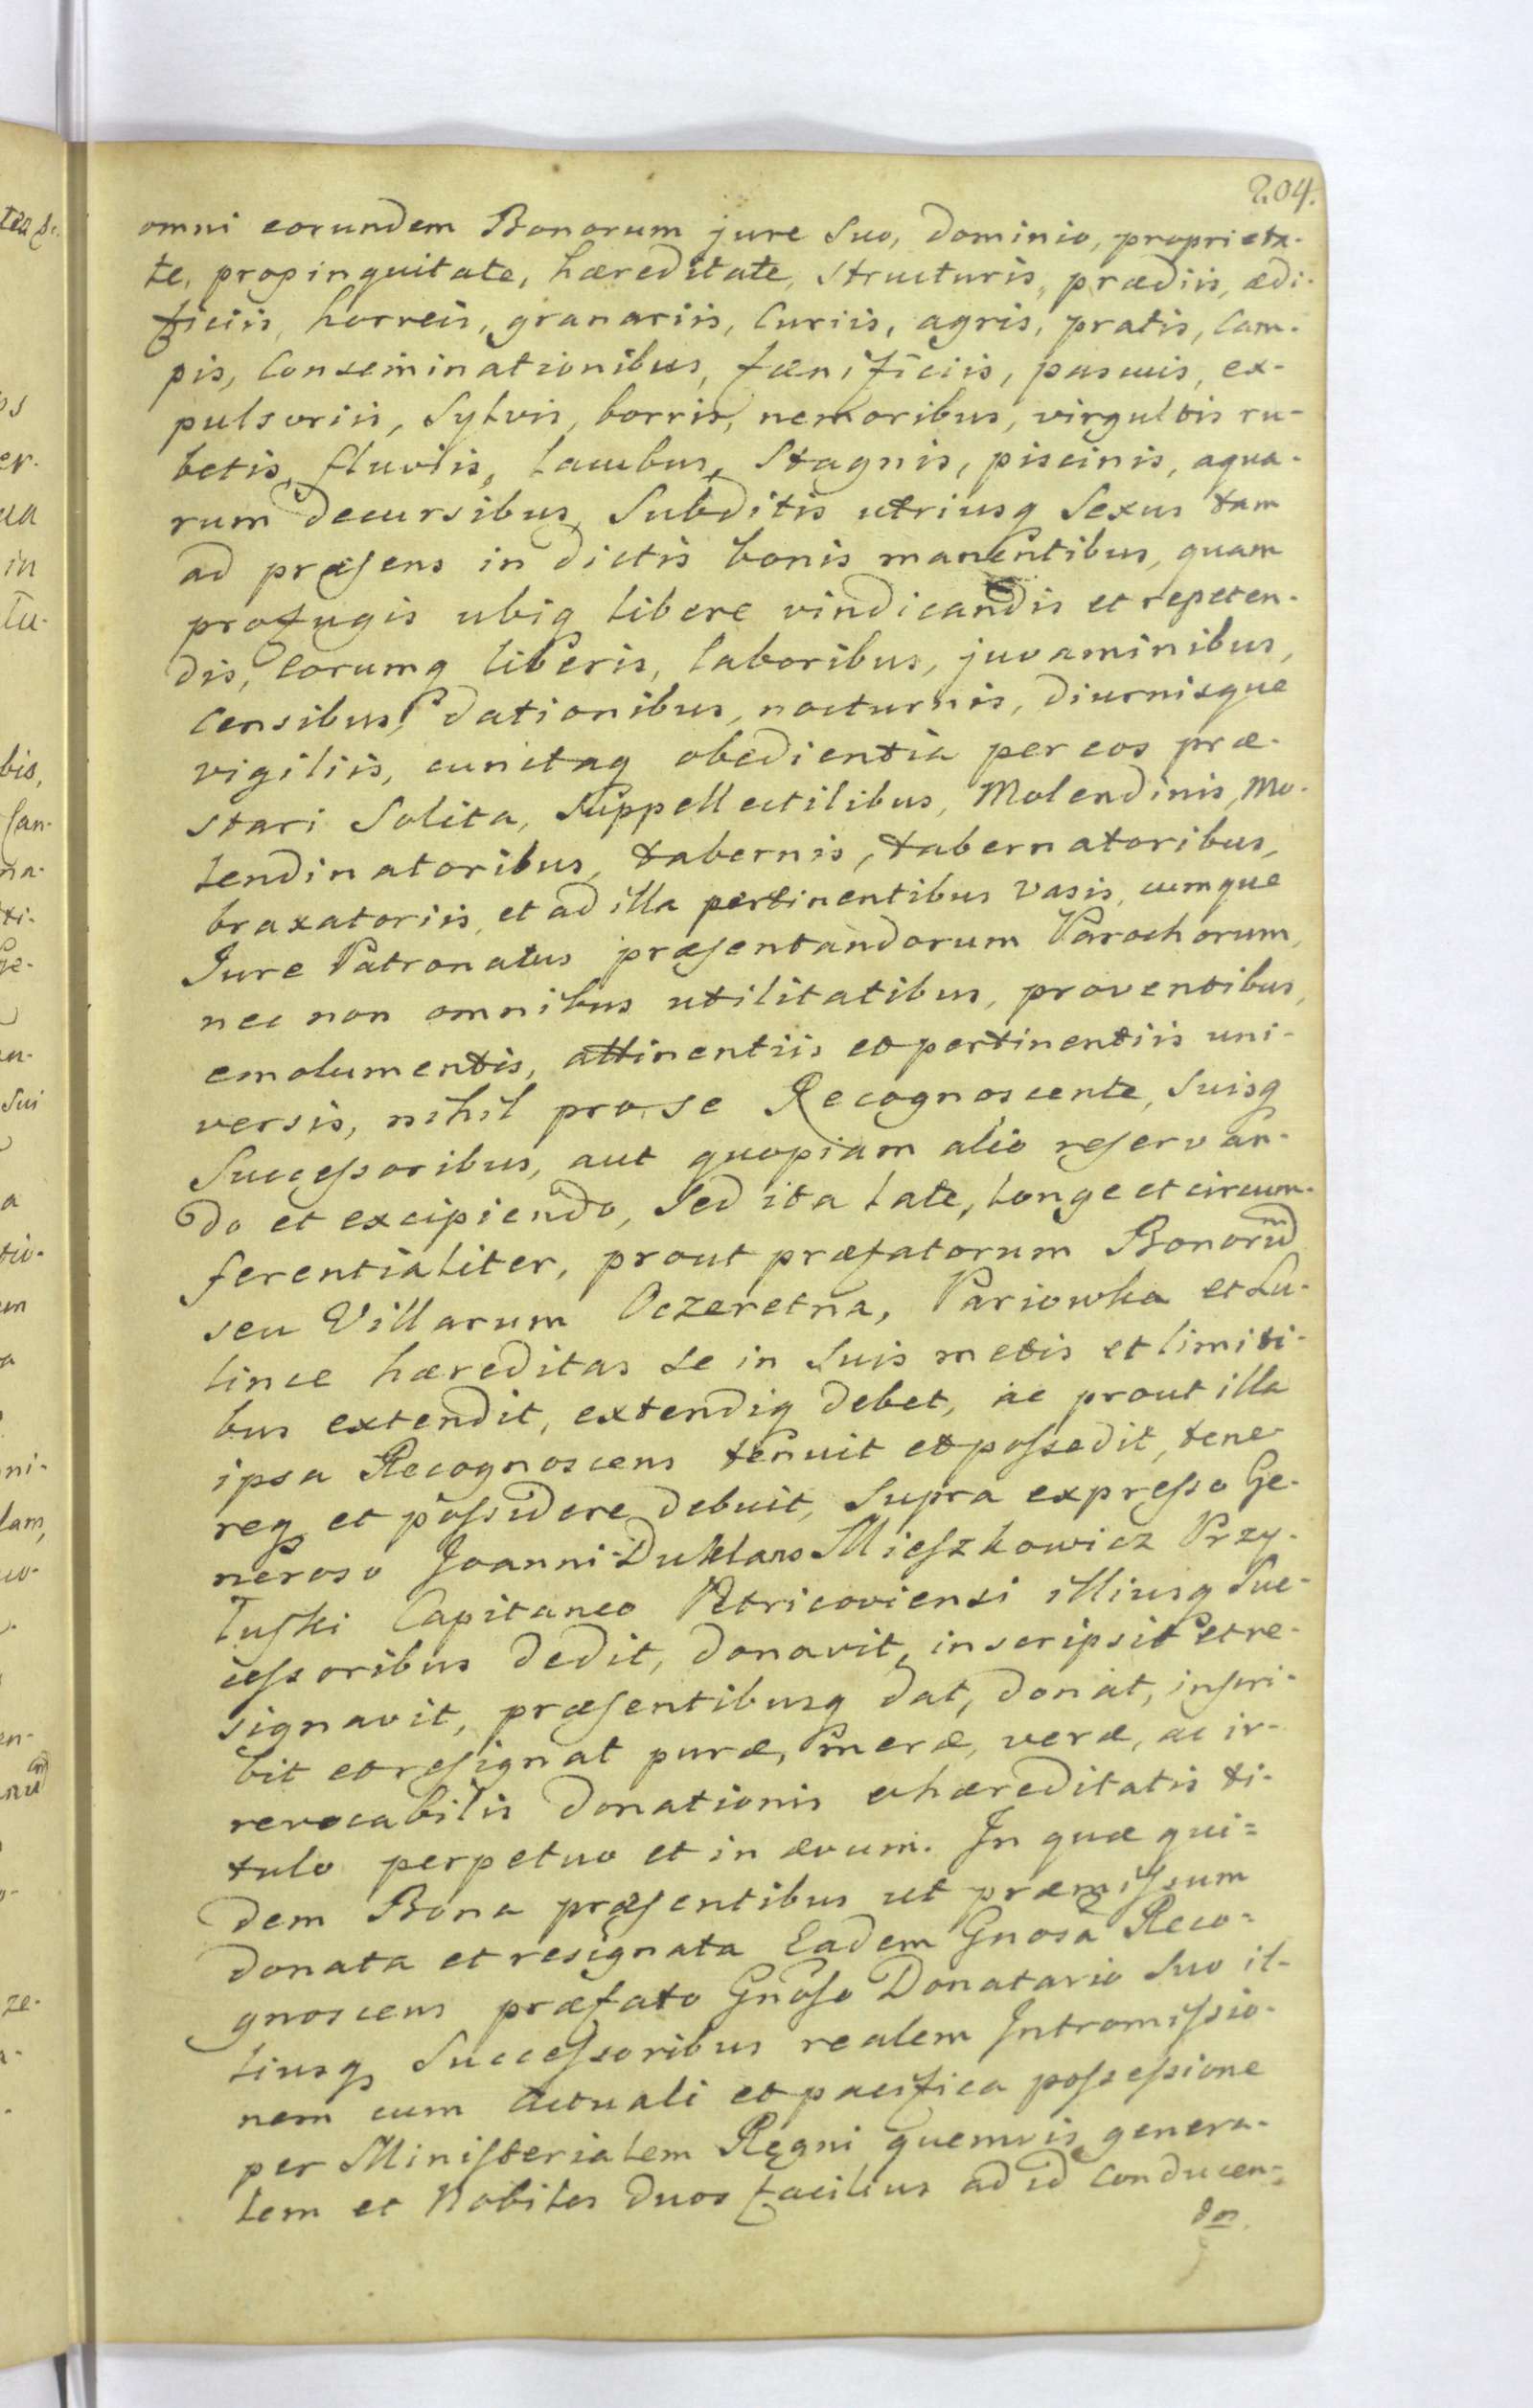 204.
omni eorundem Bonorum jure Suo, dominio, proprieta-
te, propinquitate, hæreditate, structuris, prædiis, ædi-
ficiis, horreis, granariis, Curiis, agris, pratis, Cam-
pis, Conseminationibus, fænificiis, pascuis, ex-
pulsoriis, Sylvis, borris, nemoribus, virgultis ru-
betis, fluviis, lacubus, Stagnis, piscinis, aqua-
rum decursibus, Subditis utriusq Sexus tam
ad præsens in dictis bonis manentibus, quam
profugis ubiq libere vindicandis et repeten-
dis, eorumq liberis, laboribus, juvaminibus,
Censibus, dationibus, nocturnis, diurnisque
vigiliis, cunctaq obedientia per eos præ-
stari Solita, Suppellectilibus, Molendinis, Mo-
lendinatoribus, tabernis, tabernatoribus,
braxatoriis, et ad illa pertinentibus vasis, cumque
Jure Patronatus præsentandorum Parochorum,
nec non omnibus utilitatibus, proventibus,
emolumentis, attinentiis et pertinentiis uni-
versis, nihil pro se Recognoscente, Suisq
Successoribus, aut quopiam alio reservan-
do et excipiendo, Sed ita late, longe et circum-
ferentialiter, prout præfatorum Bonorum
seu Villarum Oczeretna, Pariowka et Lu-
lince hæreditas se in Suis metis et limiti-
bus extendit, extendiq debet, ac prout illa
ipsa Recognoscens tenuit et possedit, tene-
req et possidere debuit, Supra expresso Ge-
neroso Joanni Duklano Mieszkowicz Przy-
łuski Capitaneo Petricoviensi illiusq Suc-
cessoribus dedit, donavit, inscripsit et re-
signavit, præsentibusq dat, donat, inscri-
bit et resignat puræ, meræ, veræ, ac ir-
revocabilis donationis et hæreditatis ti-
tulo perpetuo et in ævum. In quæ qui=
dem Bona præsentibus ut præmissum
donata et resignata Eadem Gnosa Reco=
gnoscens præfato Gnoso Donatario Suo il-
liusq Successoribus realem Intromissio-
nem cum actuali et pacifica possessione
per Ministerialem Regni quemvis genera-
lem et Nobiles duos facilius ad id conducen=
dos